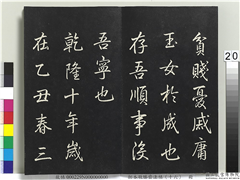 貧賤憂戚庸
玉女於成也
存吾順事沒
吾寧也
乾隆十年歲
在乙丑春三
20